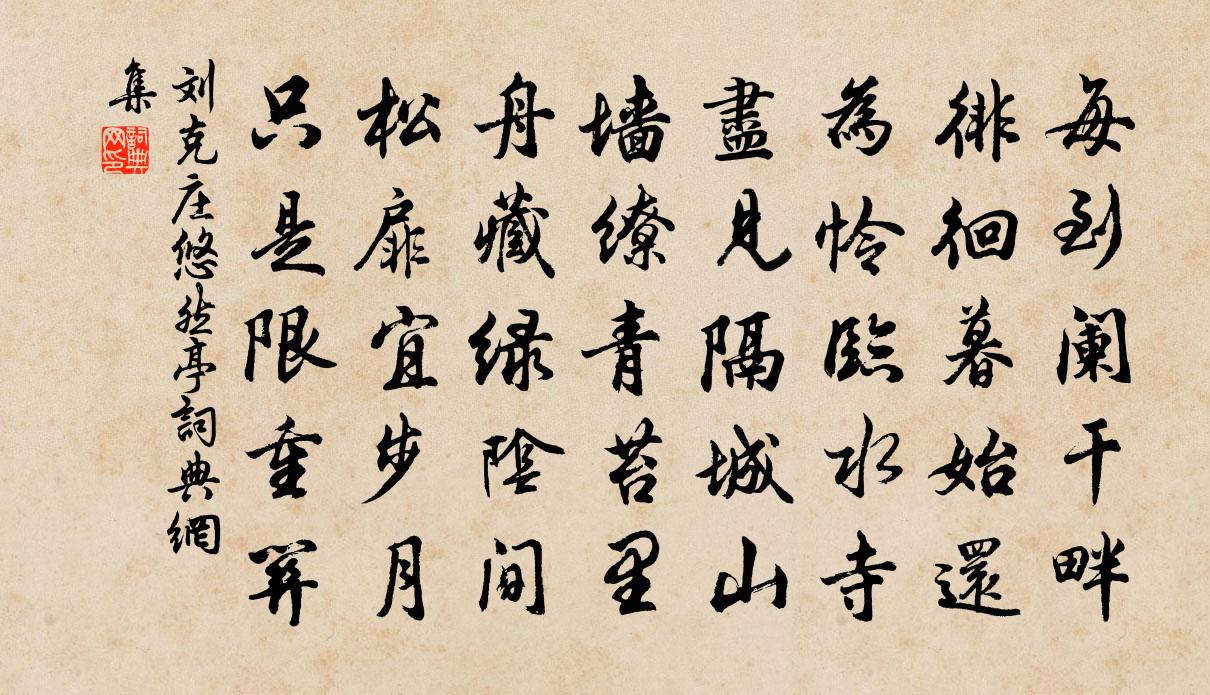 每到阑干畔
徘徊暮始還
為怜臨水寺
盡見隔城山
墙缭青苔里
舟藏绿陰间
松扉宜步月
只是限重关
刘克庄悠然亭詞典網
集
詞典
网印